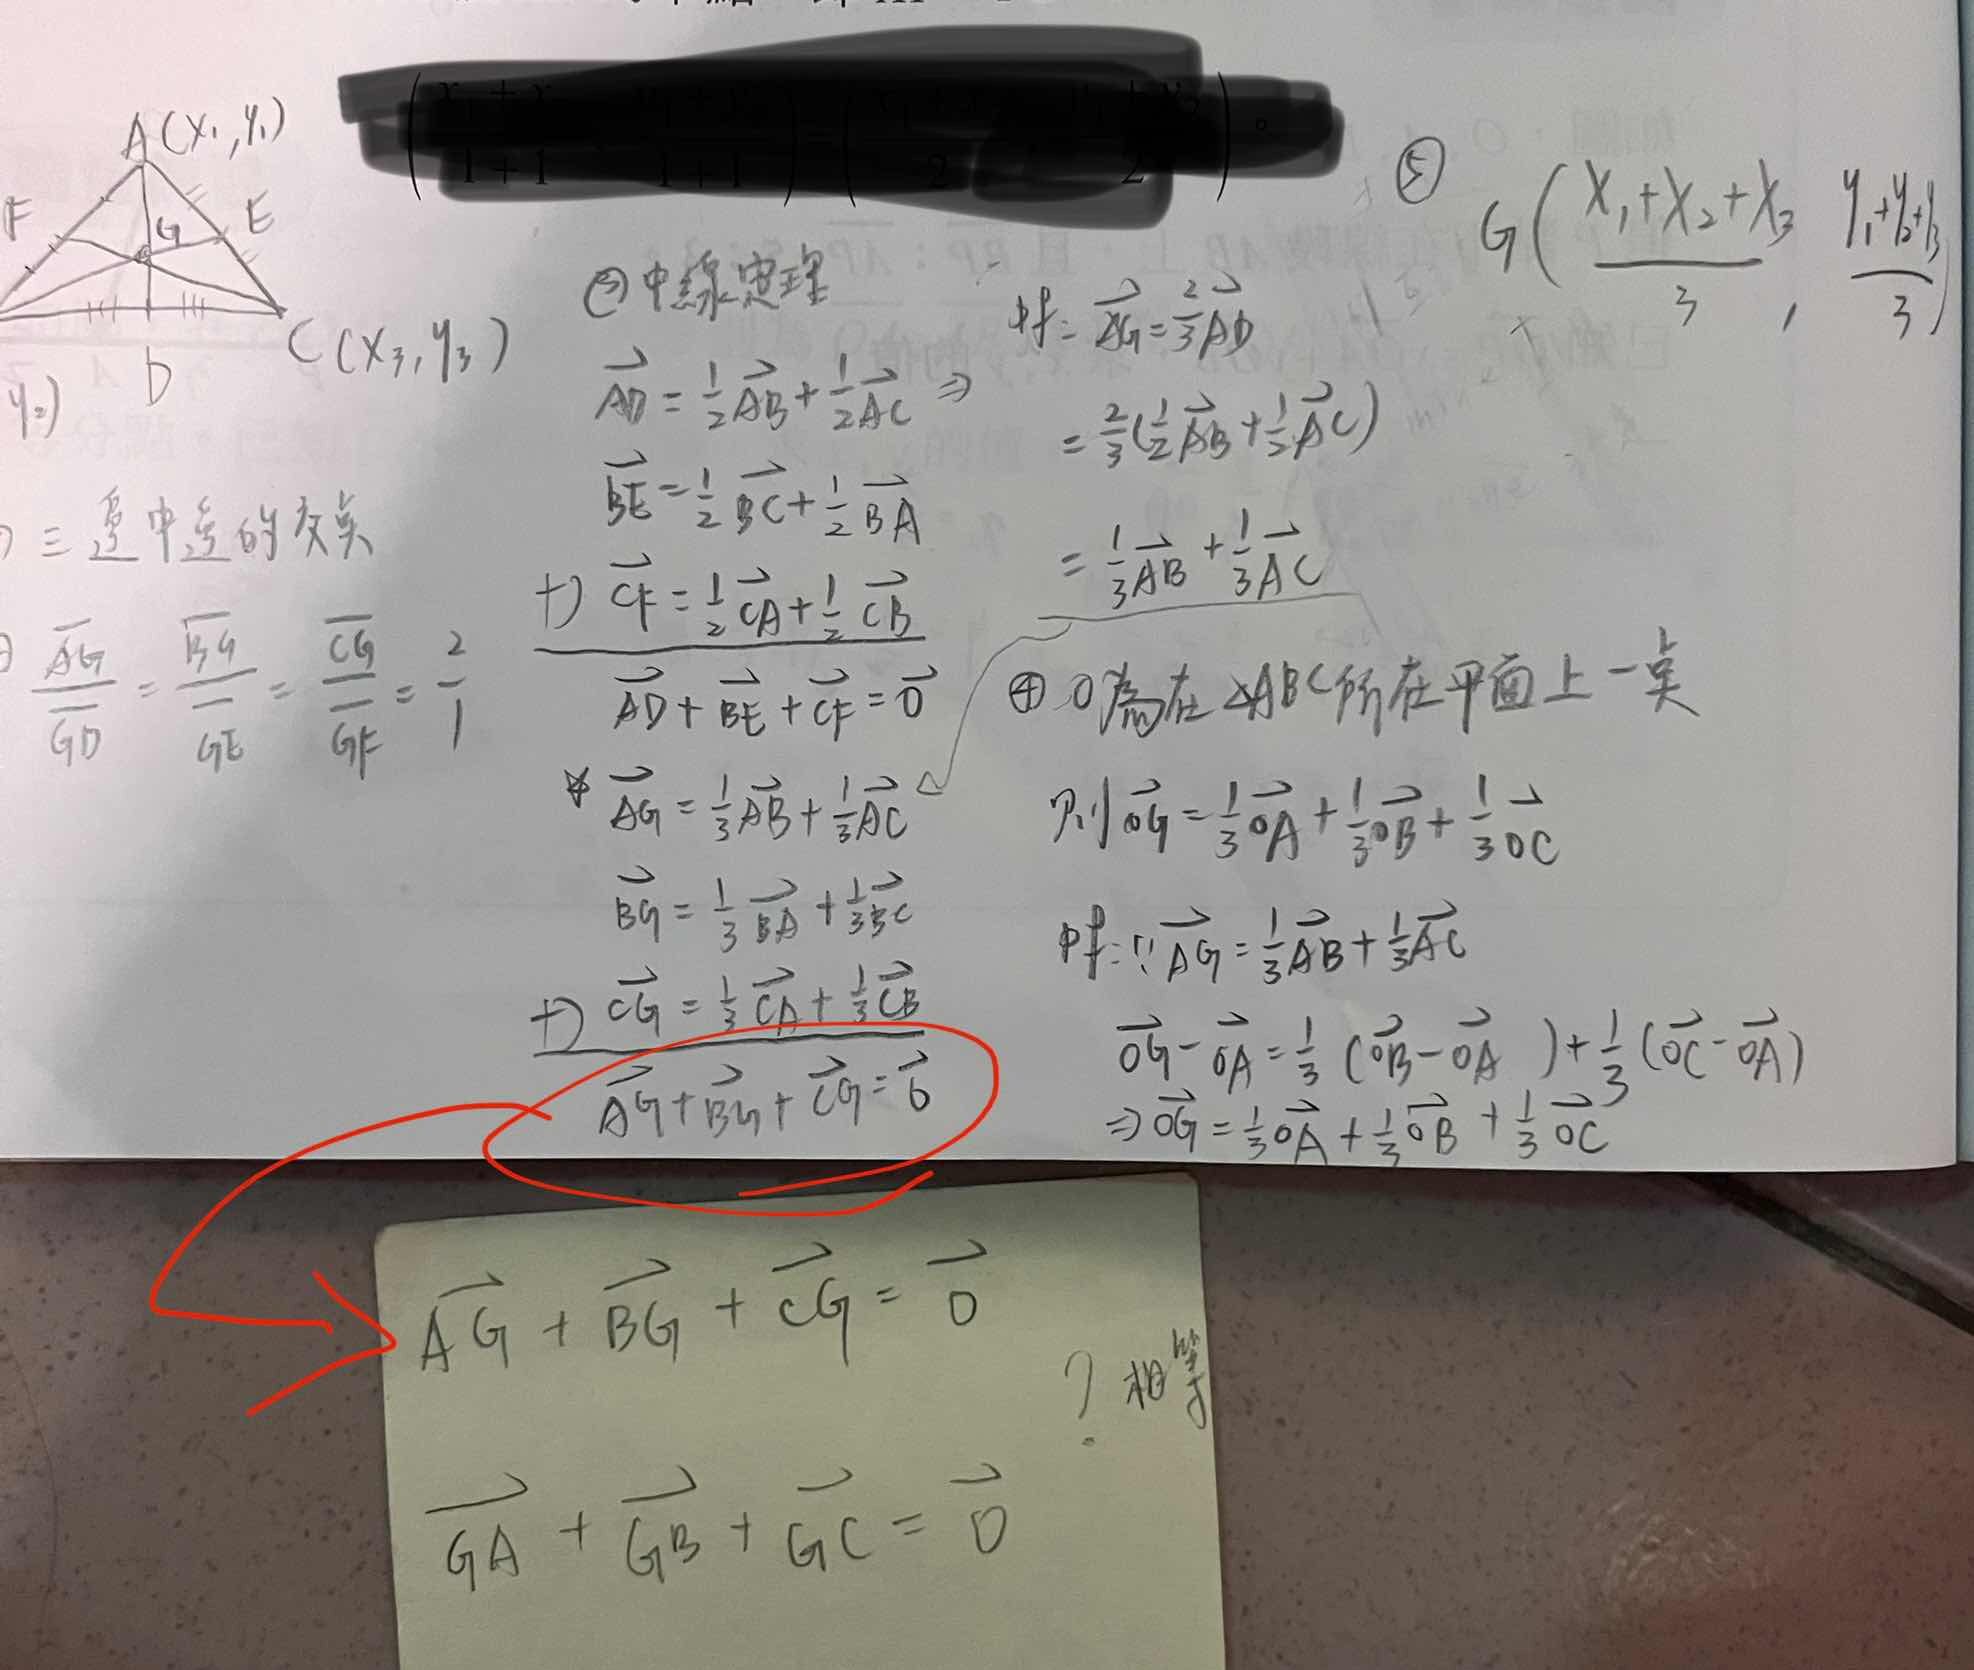 A(x₁,y₁)
F
G
E
C(x₃,y₃)
D
y₂)
三邊中邊的交點
$\frac{\overline{AG}}{\overline{GD}} = \frac{\overline{BG}}{\overline{GE}} = \frac{\overline{CG}}{\overline{GF}} = \frac{2}{1}$
中線定理
$\vec{AD} = \frac{1}{2}\vec{AB} + \frac{1}{2}\vec{AC}$ ⇒
$\vec{BE} = \frac{1}{2}\vec{BC} + \frac{1}{2}\vec{BA}$
+) $\vec{CF} = \frac{1}{2}\vec{CA} + \frac{1}{2}\vec{CB}$
$\vec{AD} + \vec{BE} + \vec{CF} = \vec{0}$
$\vec{AG} = \frac{1}{3}\vec{AB} + \frac{1}{3}\vec{AC}$
$\vec{BG} = \frac{1}{3}\vec{BA} + \frac{1}{3}\vec{BC}$
+) $\vec{CG} = \frac{1}{3}\vec{CA} + \frac{1}{3}\vec{CB}$
$\vec{AG} + \vec{BG} + \vec{CG} = \vec{0}$
$\vec{AG} = \frac{2}{3}\vec{AD}$
$= \frac{2}{3}(\frac{1}{2}\vec{AB} + \frac{1}{2}\vec{AC})$
$= \frac{1}{3}\vec{AB} + \frac{1}{3}\vec{AC}$
④ O為在△ABC所在平面上一點
則 $\vec{OG} = \frac{1}{3}\vec{OA} + \frac{1}{3}\vec{OB} + \frac{1}{3}\vec{OC}$
∵ $\vec{AG} = \frac{1}{3}\vec{AB} + \frac{1}{3}\vec{AC}$
$\vec{OG} - \vec{OA} = \frac{1}{3}(\vec{OB} - \vec{OA}) + \frac{1}{3}(\vec{OC} - \vec{OA})$
⇒ $\vec{OG} = \frac{1}{3}\vec{OA} + \frac{1}{3}\vec{OB} + \frac{1}{3}\vec{OC}$
⑤ $G(\frac{x_1+x_2+x_3}{3}, \frac{y_1+y_2+y_3}{3})$
$\vec{AG} + \vec{BG} + \vec{CG} = \vec{0}$
? 相等
$\vec{GA} + \vec{GB} + \vec{GC} = \vec{0}$